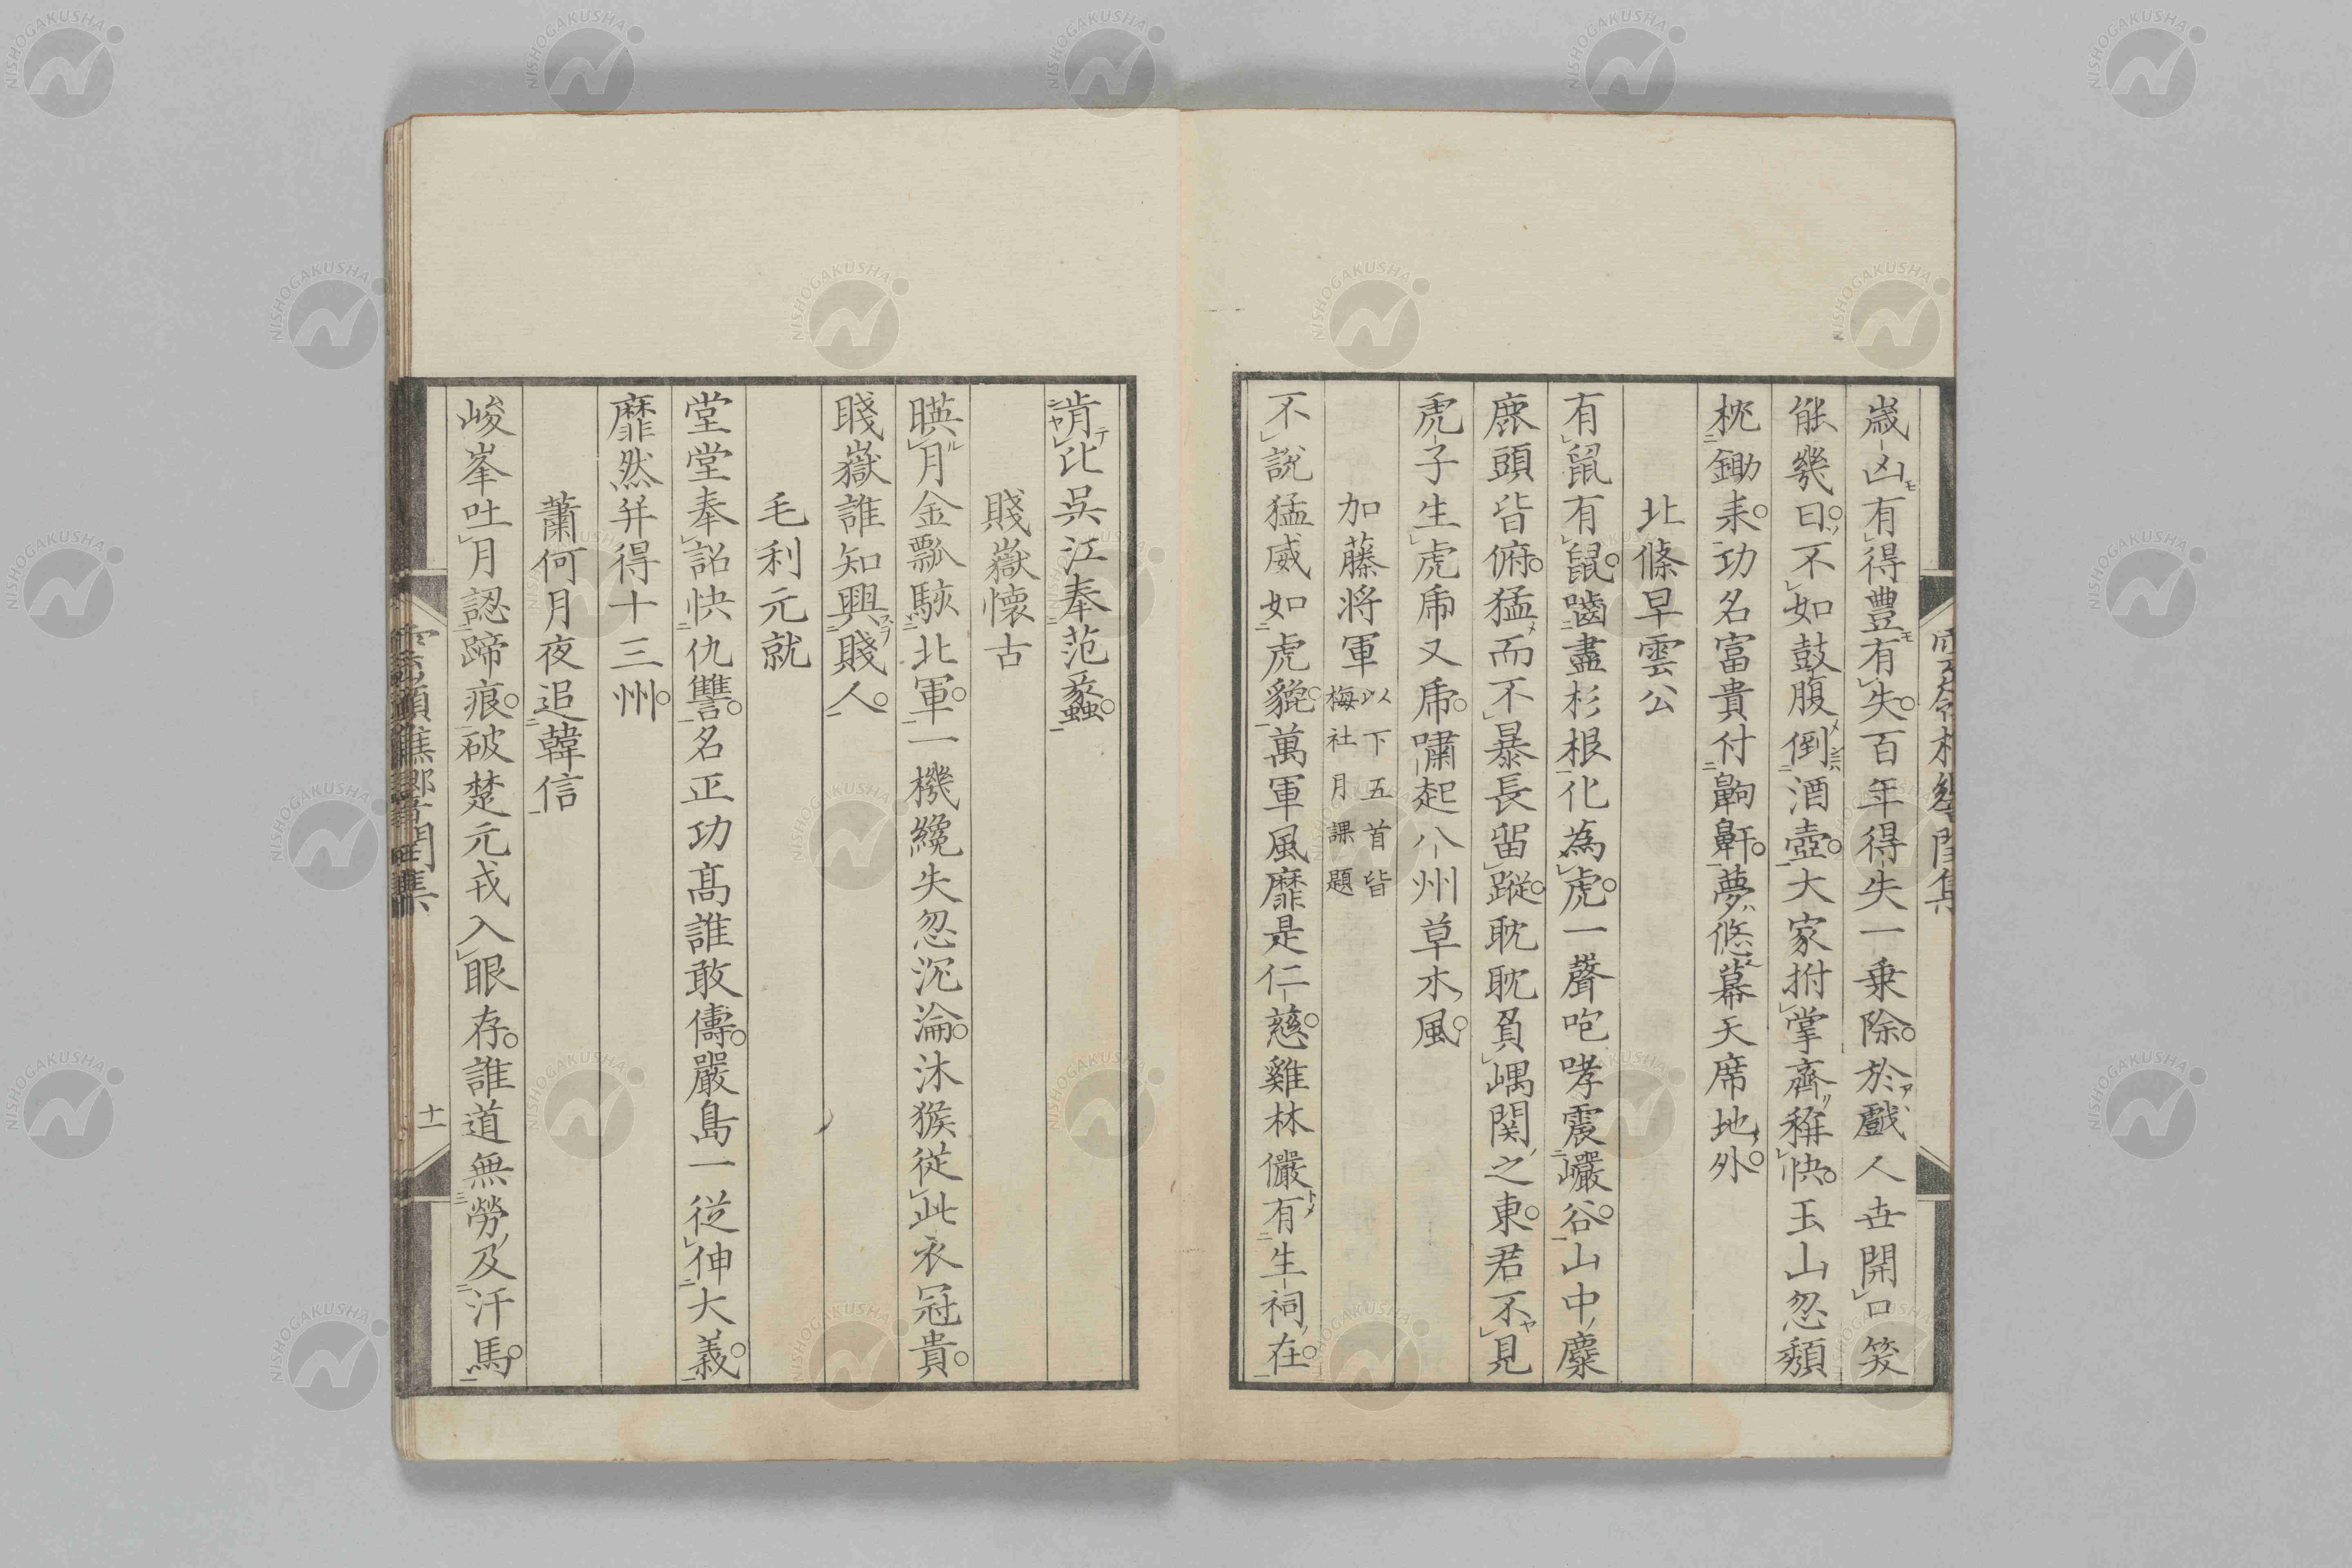 歲凶有得豊有失百年得失一乗除於戲人世開口笑
能幾日不如鼓腹倒酒壺大家拊掌齊稱快玉山忽頽
枕鋤耒功名富貴付齁鼾夢悠幕天席地外
北條早雲公
有鼠有鼠嚙盡杉根化為虎一聲咆哮震巖谷山中麋
鹿頭皆俯猛而不暴長留蹤耽耽負嵎関之東君不見
虎子生虎乕又乕嘯起八州草木風
加藤将軍以下五首皆梅社月課題
不說猛威如虎貔萬軍風靡是仁慈雞林儼有生祠在
肯比吴江奉范蠡
賤嶽懷古
暎月金瓢駭北軍一機纔失忽沉淪沐猴従此衣冠貴
賤嶽誰知興賤人
毛利元就
堂堂奉詔快仇讐名正功髙誰敢儔嚴島一従伸大義
靡然并得十三州
蕭何月夜追韓信
峻峯吐月認蹄痕破楚元戎入眼存誰道無勞及汗馬
十一
NISHOGAKUSHA